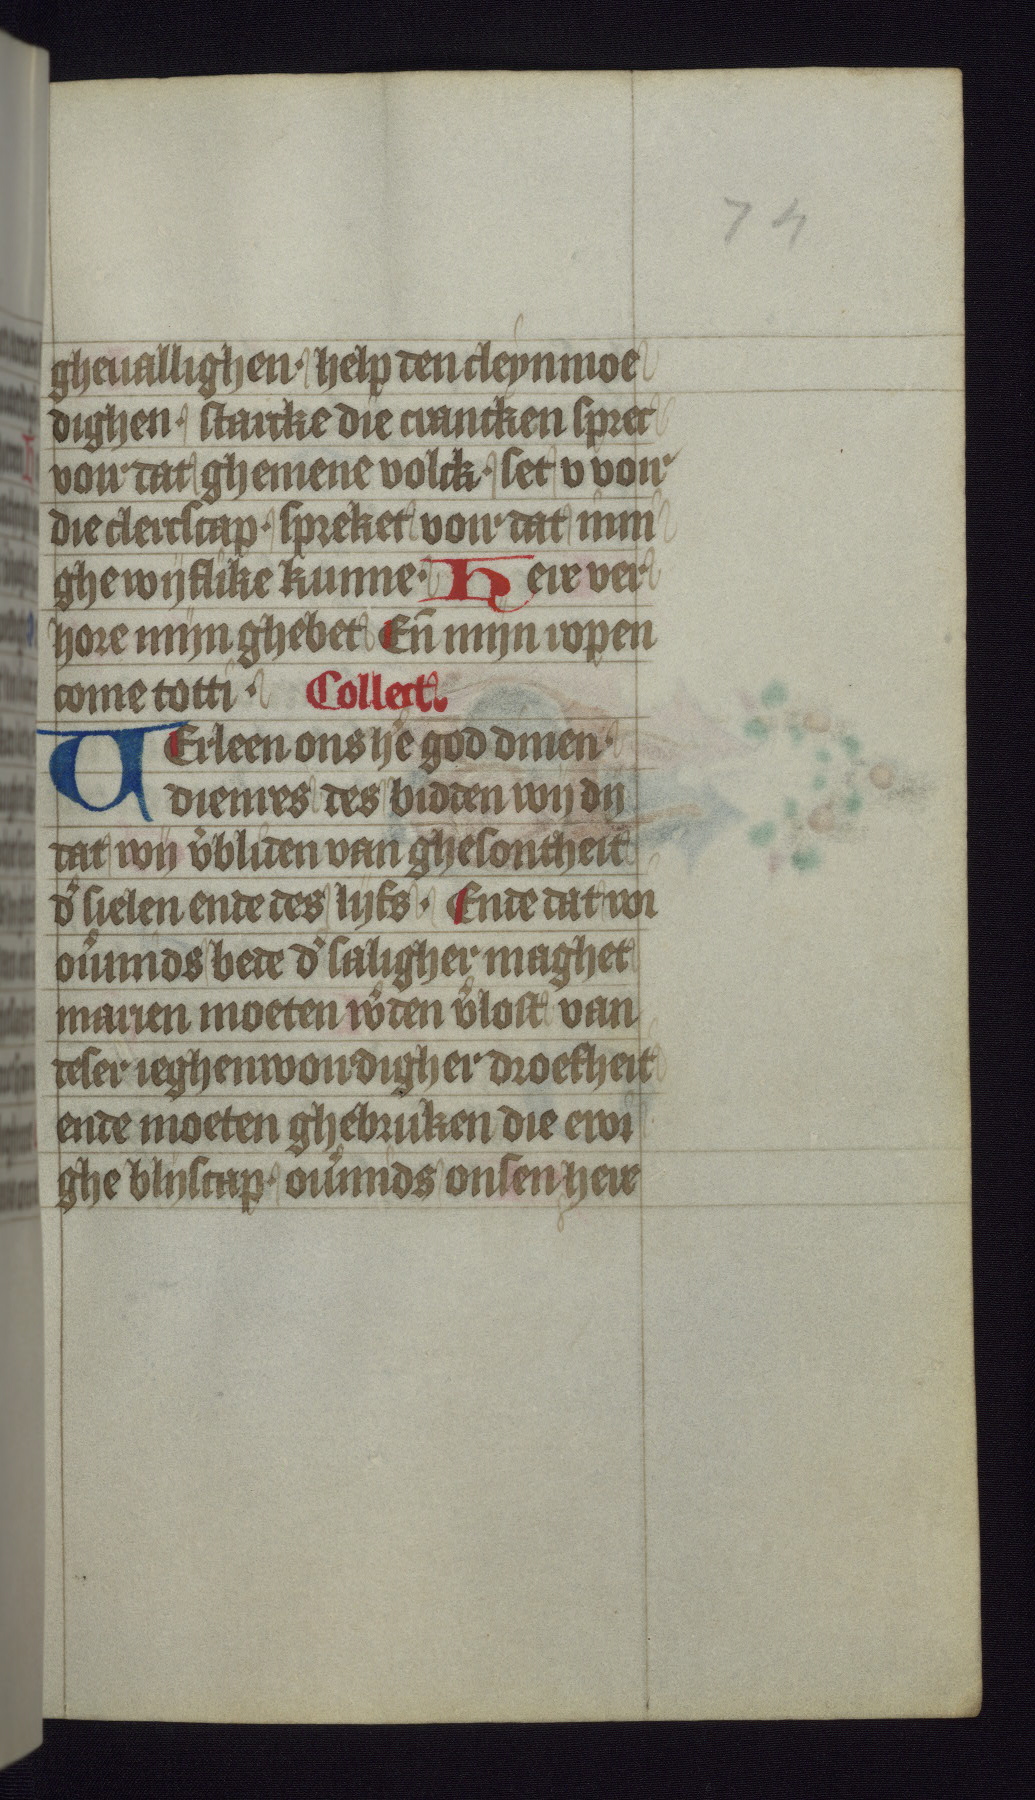 74
gheuallighen· help den cleynmoe
dighen· starcke die crancken sprec
voir dat ghemene volck· set v voir
die clercscap· spreket voir dat inni
ghe wijflike kunne· Here ver
hore mijn ghebet Eñ mijn ropen
come totti· Collect.
VErleen ons h̓e god dinen·
dienres des bidden wij dij
dat wij v̓bliden van ghesontheit
d̓ sielen ende des lijfs· Ende dat wi
ou̓mids bede d̓ saligher maghet
marien moeten w̓den v̓lost van
deser ieghenwoirdigher droefheit
ende moeten ghebruken die ewi
ghe blijscap· ou̓mids onsen here